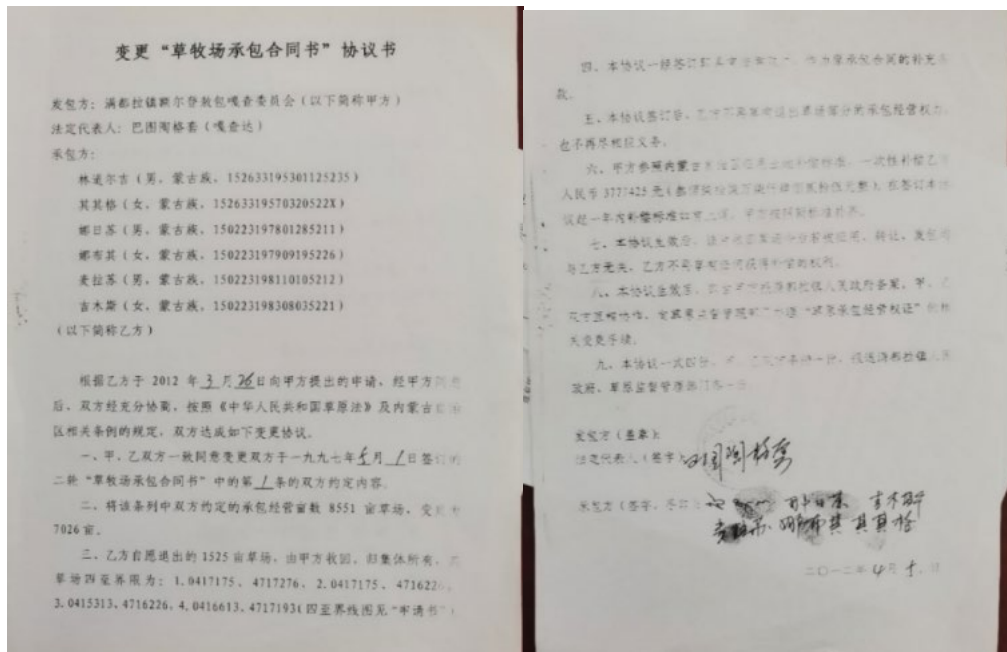 变更“草牧场承包合同书”协议书
发包方：满都拉镇额尔登敖包嘎查委员会（以下简称甲方）
法定代表人：巴图陶格套（嘎查达）
承包方：
林道尔吉（男，蒙古族，152633195301125235）
其其格（女，蒙古族，15263319570320522X）
娜日苏（男，蒙古族，150223197801285211）
娜布其（女，蒙古族，150223197909195226）
麦拉苏（男，蒙古族，150223198110105212）
吉木斯（女，蒙古族，150223198308035221）
（以下简称乙方）
根据乙方于 2012 年 3 月 26 日向甲方提出的申请，经甲方同意
后，双方经充分协商，按照《中华人民共和国草原法》及内蒙古自治
区相关条例的规定，双方达成如下变更协议。
一、甲、乙双方一致同意变更双方于一九九七年 5 月 1 日签订的
二轮“草牧场承包合同书”中的第 1 条的双方约定内容。
二、将该条列中双方约定的承包经营亩数 8551 亩草场，变更为
7026 亩。
三、乙方自愿退出的 1525 亩草场，由甲方收回，归集体所有，
草场四至界限为：1.0417175、4717276、2.0417175、4716226、
3.0415313、4716226、4.0416613、4717193（四至界线图见“申请书”）
四、本协议一经签订 作为原承包合同的补充条
款。
五、本协议签订后，乙方不再享有退出草场部分的承包经营权力，
也不再尽相应义务。
六、甲方参照内蒙古自治区征用土地补偿标准，一次性补偿乙方
人民币 3777425 元（叁佰柒拾柒万柒仟肆佰贰拾伍元整），在签订本协
议起一年内补偿标准如有上调，甲方按照新标准补齐。
七、本协议生效后，该 草场 若被征用、转让、发包均
与乙方无关，乙方不再享有任何获得补偿的权利。
八、本协议生效后， 满都拉镇人民政府备案，甲、乙
双方互相协作，在草原监督管理部门办理“草原承包经营权证”的相
关变更手续。
九、本协议一式四份，甲、乙双方各持一份，报送满都拉镇人民
政府、草原监督管理部门各一份。
发包方（盖章）：
法定代表人（签字）： 巴图陶格套
承包方（签字、 ）： 娜日苏 吉木斯
麦拉苏 娜布其 其其格
二〇一二年 4 月 日